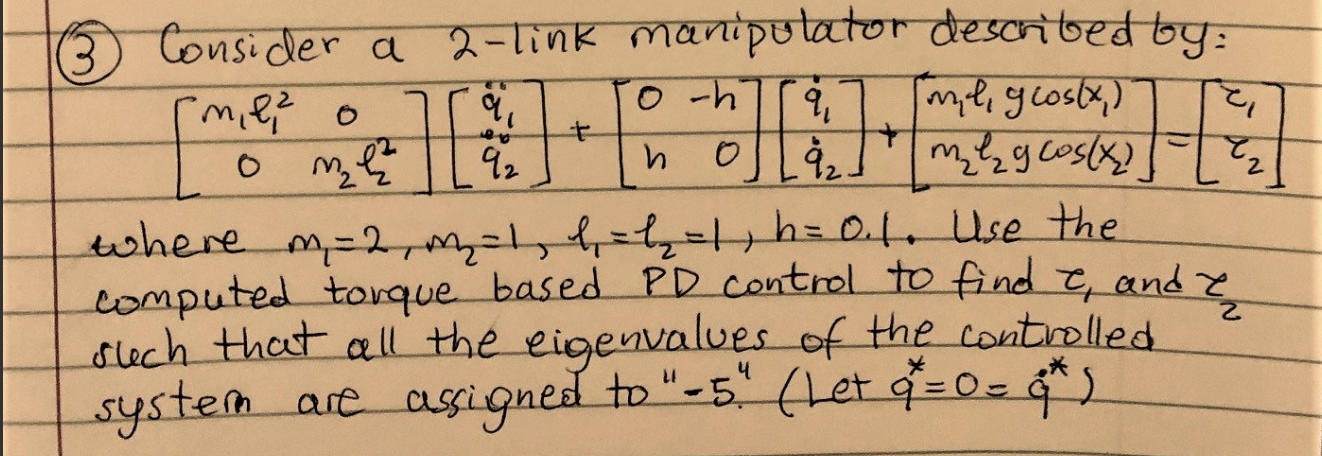 ③ Consider a 2-link manipulator described by:
[m₁ℓ₁² 0; 0 m₂ℓ₂²] [q̈₁; q̈₂] + [0 -h; h 0] [q̇₁; q̇₂] + [m₁ℓ₁ g cos(x₁); m₂ℓ₂ g cos(x₂)] = [τ₁; τ₂]
where m₁=2, m₂=1, ℓ₁=ℓ₂=1, h=0.1. Use the
computed torque based PD control to find τ₁ and τ₂
such that all the eigenvalues of the controlled
system are assigned to "-5". (Let q*=0=q̇*)